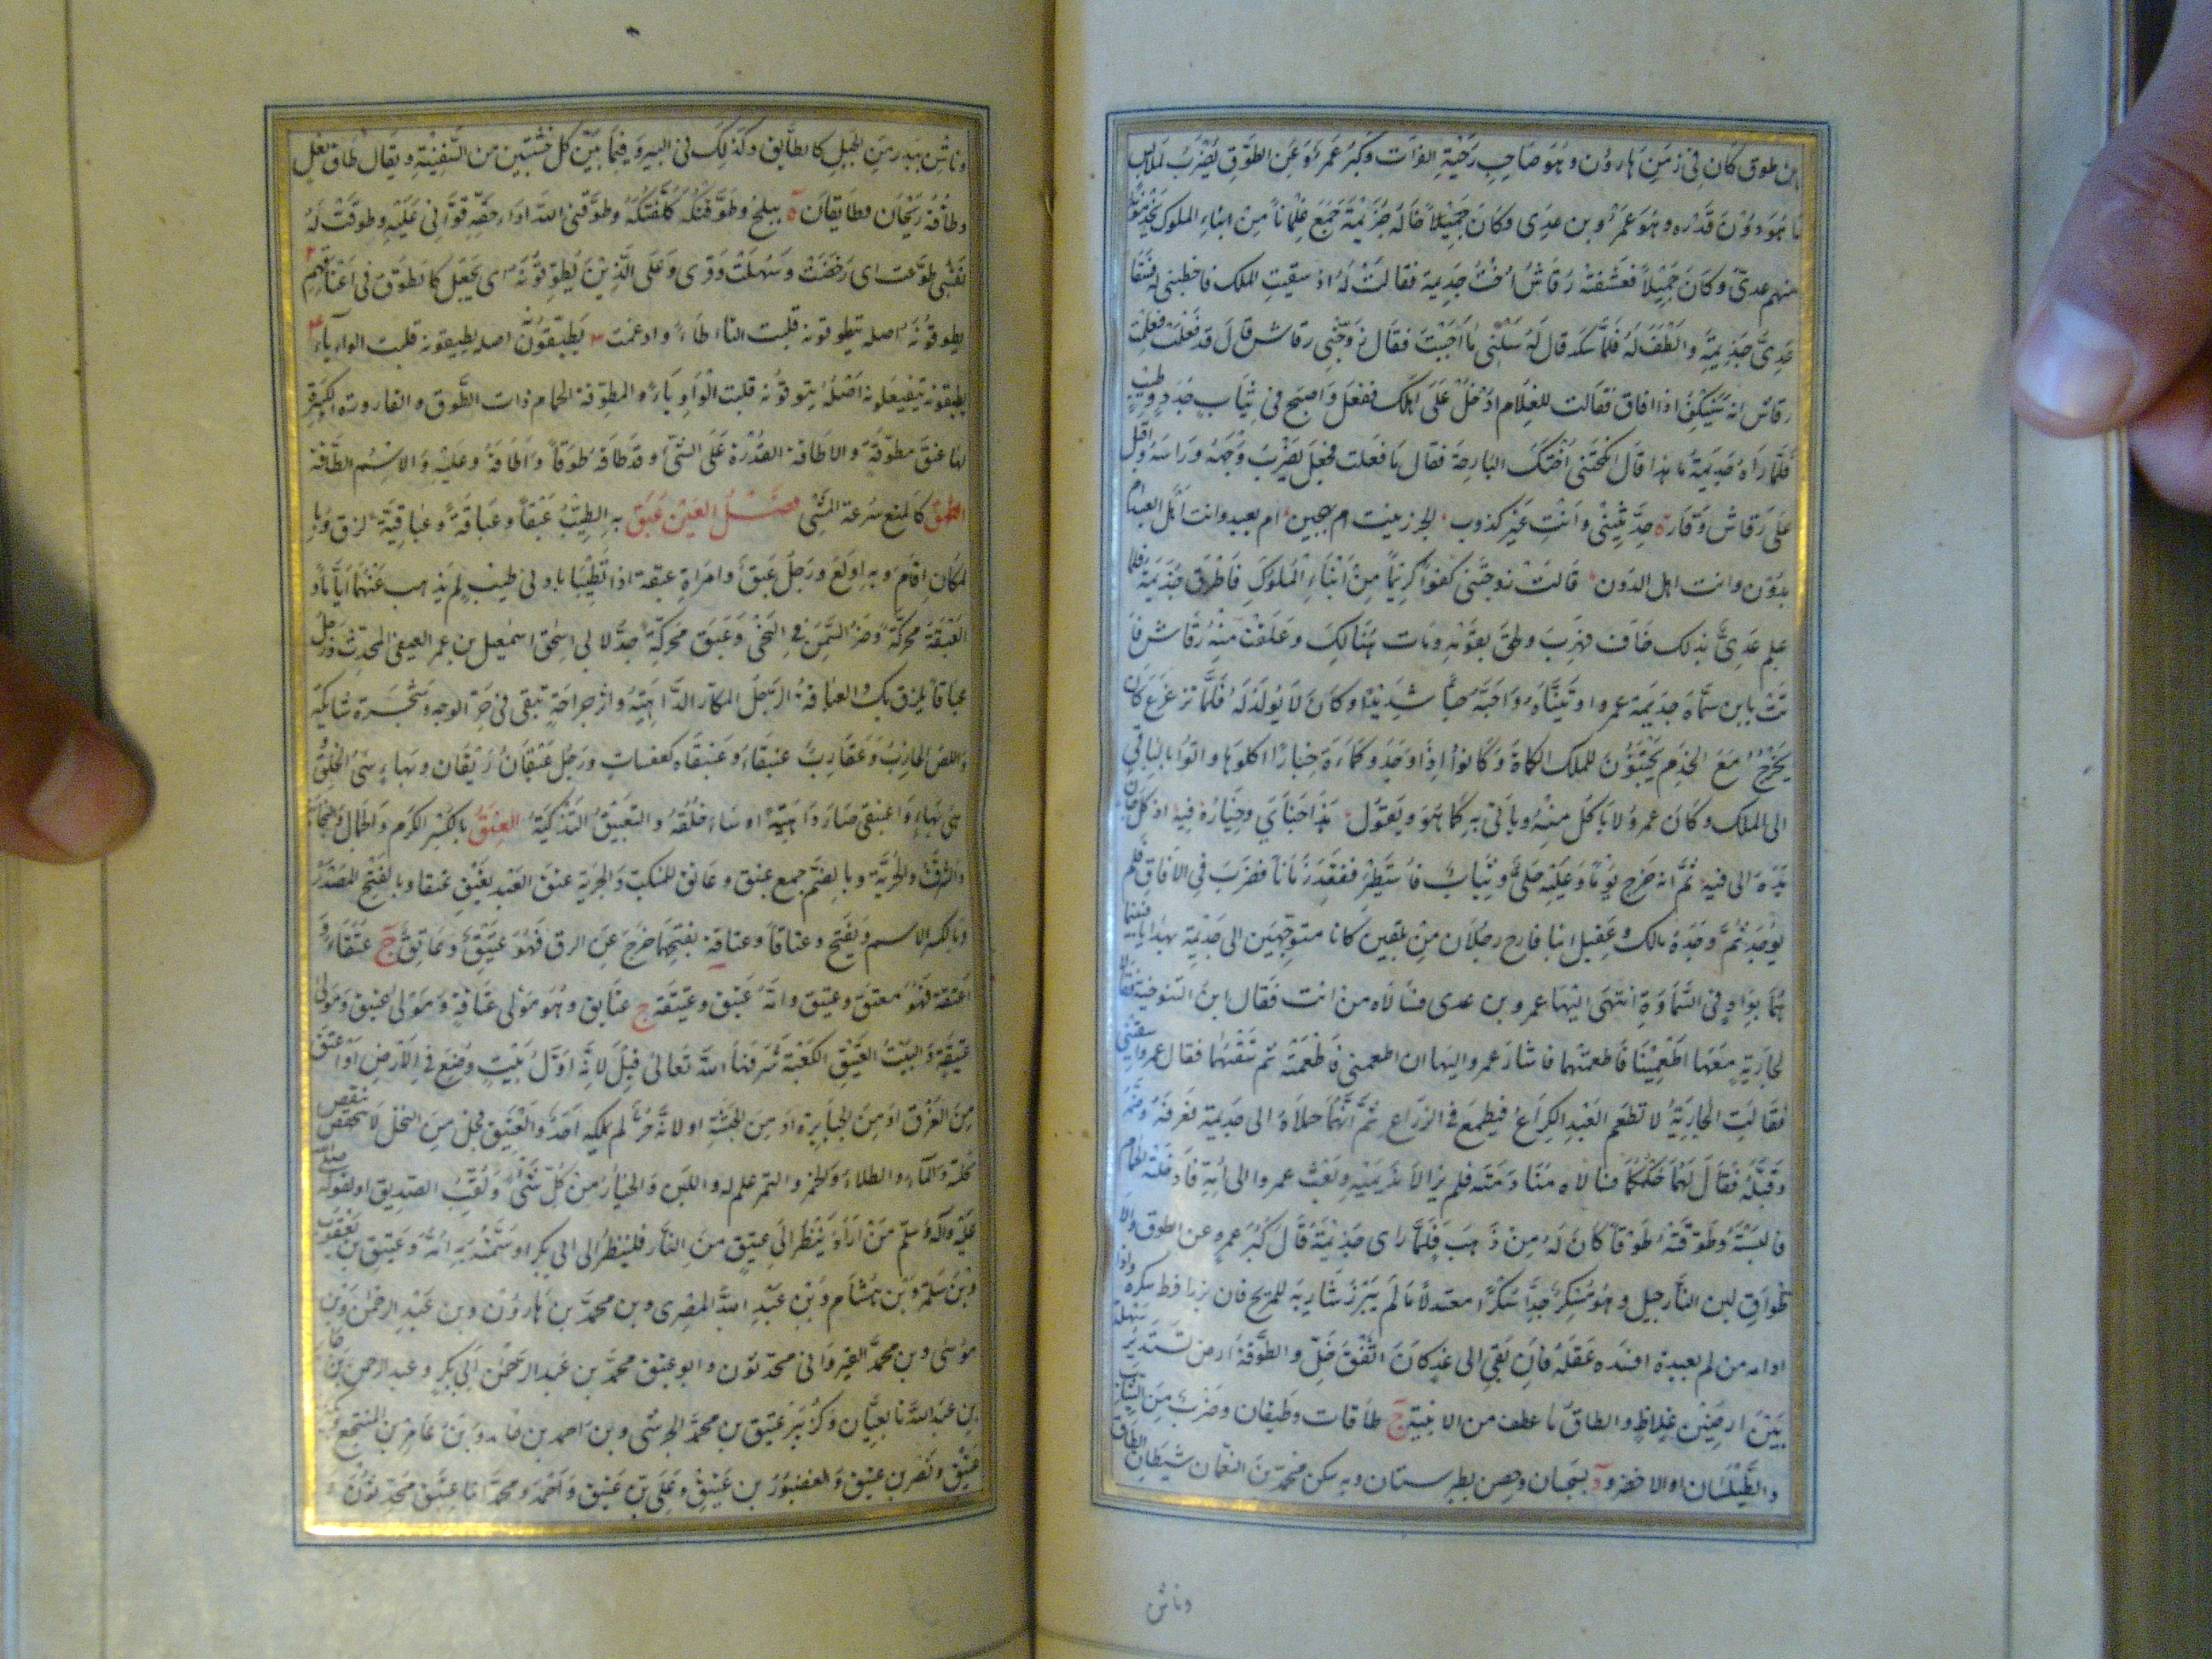 بن طوق كان في زمن هارون وهو صاحب رحبة الفرات وكبر عمرو عن الطوق يضرب لملابس
ما هو دون قدره وهو عمرو بن عدي وكان جميلا خاله جذيمة جمع غلمانا من ابناء الملوك يخدمونه
منهم عدي وكان جميلا فعشقته رقاش اخت جذيمة فقالت له اذا سقيت الملك فاخطبني له فسقا
عدي جذيمة والطف له فلما سكر قال له سلني ما احببت فقال زوجني رقاش قال قد فعلت فعلمت
رقاش انه سينكر اذا افاق فقالت للغلام ادخل على اهلك ففعل واصبح في ثياب جدد وطيب
فلما راه جذيمة ما هذا قال انكحتني اختك البارحة فقال ما فعلت فجعل يضرب وجهه وراسه واقبل
على رقاش وقال حدثيني وانت غير كذوب الحر زنيت ام بهجين ام بعبد وانت اهل لعبد ام
بدون وانت اهل لدون قالت زوجتني كفوا كريما من ابناء الملوك فاطرق جذيمة فلما
علم عدي بذلك خاف فهرب ولحق بقومه ومات هنالك وعلقت منه رقاش فا
تت بابن سماه جذيمة عمروا وتبناه واحبه حبا شديدا وكان لا يولد له فلما ترعرع كان
يخرج مع الخدم يجتنون للملك الكماة وكانوا اذا وجدوا كماءة خيارا اكلوها واتوا بالباقي
الى الملك وكان عمرو لا ياكل منه وياتي به كما هو ويقول هذا جناي وخياره فيه اذ كل جان
يده الى فيه ثم انه خرج يوما وعليه حلي وثياب فاستطير ففقد زمانا فضرب في الافاق فلم
يوجد ثم وجده مالك وعقيل ابنا فارح رجلان من بلقين كانا متوجهين الى جذيمة بهدايا فبينما
هما بواد في السماوة انتهى اليهما عمرو بن عدي فسالاه من انت فقال ابن التنوخية فقالا
لجارية معهما اطعمينا فاطعمتهما فاشار عمرو اليها ان اطعميني فاطعمته ثم سقتهما فقال عمرو اسقيني
فقالت الجارية لا تطعم العبد الكراع فيطمع في الذراع ثم انهما حملاه الى جذيمة فعرفه وضمه
وقبله فقال لهما حكمكما فسالاه منادمته فلم يزالا نديميه وبعث عمروا الى امه فادخلته الحمام
فالبسته وطوقته طوقا كان له من ذهب فلما راى جذيمة قال كبر عمرو عن الطوق والا
طواق لبن النارجيل وهو مسكر جدا سكرا معتدلا ما لم يبرز شاربه للريح فان برز افرط سكره واذا
ادامه من لم يعتده افسد عقله فان بقي الى غد كان اثقف خل والطوقة ارض تستدير سهلة
بين ارضين غلاظ والطاق ما عطف من الابنية ج طاقات وطيقان وضرب من الثياب
والطيلسان او الاخضر و د بسجستان وحصن بطبرستان وبه سكن محمد بن النعمان شيطان الطاق
وناشز
وناشز يندر من الجبل كالطائق وكذلك في البير وفيما بين كل خشبتين من السفينة ويقال طاق نعل
وطاقة ريحان وطايقان ة ببلخ وطوقتكه كلفتكه وطوقني الله اداء حقه قواني عليه وطوقت له
نفسه طوعت اي رخصت وسهلت وقرئ وعلى الذين يطوقونه اي يجعل كالطوق في اعناقهم
يطوقونه اصله يتطوقونه قلبت التاء طاء وادغمت يطيقونه اصله يطيوقونه قلبت الواو ياء
يطيقونه يتفيعلونه اصله يتيوقونه قلبت الواو ياء والمطوقة الحمام ذات الطوق والقارورة الكبيرة
لها عنق مطوقة والاطاقة القدرة على الشئ وقد طاقه طوقا واطاقه وعليه والاسم الطاقة
الطهق كالمنع سرعة المشي فصل العين عبق به الطيب عبقا وعباقة وعباقية لزق وبا
لمكان اقام وبه اولع ورجل عبق وامراة عبقة اذا تطيبا بادنى طيب لم يذهب عنهما اياما و
العبقة محركة وضر السمن في النحي وعبق محركة جد لابي اسحق اسمعيل بن عمر العبقي المحدث ورجل
عباقا يلزق بك والعباقية الرجل المكار الداهية واثر جراحة تبقى في حر الوجه وشجرة شائكة
واللص الخارب وعقاب عبنقاء وعبنقاه كعقنبات ورجل عبقان ربقان وبهاء سئ الخلق و
هي بهاء واعبنقى صار داهية او ساء خلقه والتعبيق التذكية العتق بالكسر الكرم والجمال والنجابة
والشرف والحرية وبالضم جمع عتيق وعاتق للمنكب والحرية عتق العبد يعتق عتقا وبالفتح المصدر
وبالكسر الاسم ويفتح وعتاقا وعتاقة بفتحهما خرج عن الرق فهو عتيق وعاتق ج عتقاء و
اعتقه فهو معتق وعتيق وامة عتيق وعتيقة ج عتائق وهو مولى عتاقة ومولى عتيق ومولاة
عتيقة والبيت العتيق الكعبة شرفها الله تعالى قيل لانه اول بيت وضع في الارض او اعتق
من الغرق او من الجبابرة او من الحبشة او لانه حر لم يملكه احد والعتيق فحل من النخل لا تنفض
نخلته والماء والطلاء والخمر والتمر علم له واللبن والخيار من كل شئ ولقب الصديق او لقوله صلى
عليه واله وسلم من اراد ينظر الى عتيق من النار فلينظر الى ابي بكر او سمته به امه وعتيق بن يعقوب
وبن سلمة وبن هشام وبن عبد الله المصري وبن محمد بن هارون وبن عبد الرحمن وبن
موسى وبن محمد القيرواني محدثون وابو عتيق محمد بن عبد الرحمن ابي بكر وعبد الرحمن بن جابر
بن عبد الله تابعيان وكزبير عتيق بن محمد الحرشي وبن احمد بن حامد وبن عامر بن المنتجع وبكر بن
عتيق ونضر بن عتيق والغضور بن عتيق وعلي بن عتيق واحمد ومحمد ابنا عتيق محدثون و